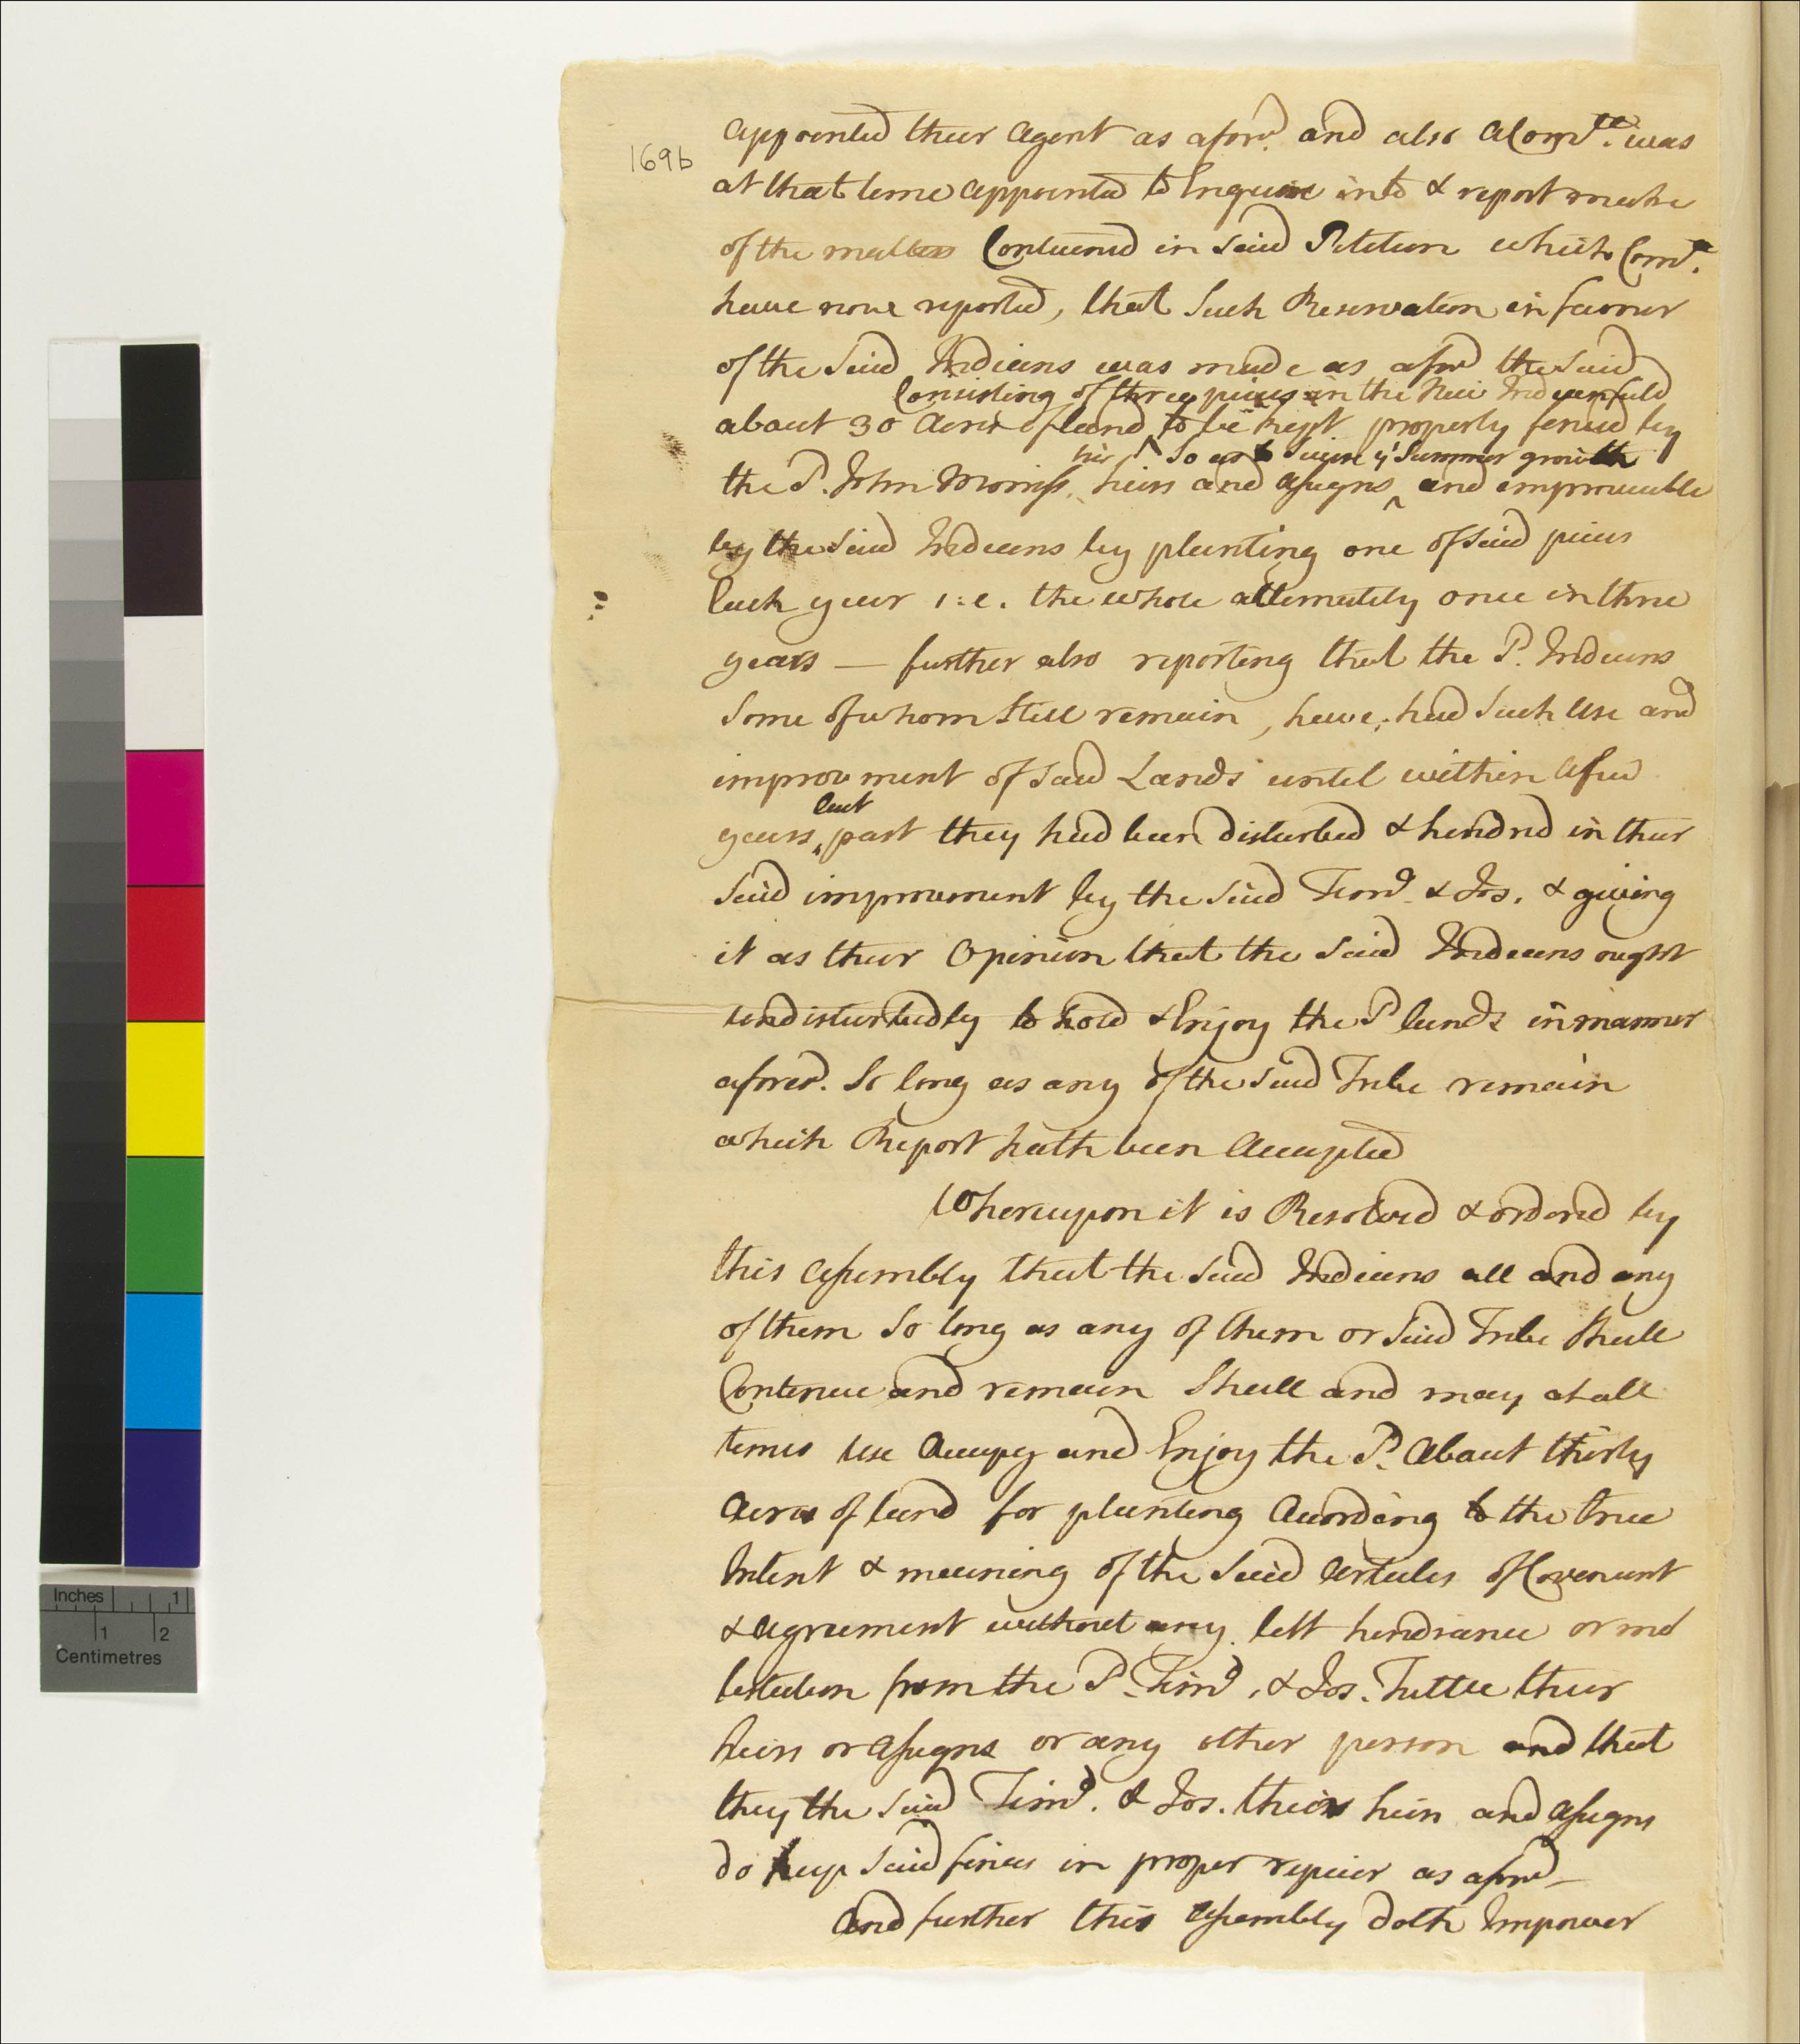 169b
appointed their Agent as afors.d and also a Com.tee was
at that time appointed to Enquire into & report make
of the matters Contained in said Petition which Com.tee
have now reported, that Such Reservation in favour
of the Said Indians was made as afors.d the Said
Consisting of three pieces in the New Indian field
about 30 Acres of land ^ to be kept properly fenced by
his so as to Secure y.e Summer growth
the s.d John Morriss, heirs and assigns ^ and improveable
by the Said Indians by planting one of said pieces
Each year i:e. the whole alternately once in three
years — further also reporting that the s.d Indians
Some of whom Still remain, have had Such Use and
improvement of Said Lands until within a few
but
years ^ past they had been disturbed & hindred in their
Said improvement by the Said Timo. & Jos. & giving
it as their Opinion that the Said Indians ought
undisturbedly to hold & Enjoy the s.d lands in manner
afores.d So long as any of the Said Tribe remain
which Report hath been Accepted
Whereupon it is Resolved & ordered by
this Assembly that the Said Indians all and any
of them So long as any of them or Said Tribe Shall
Continue and remain Shall and may at all
times use Occupy and Enjoy the s.d About thirty
Acres of land for planting According to the true
Intent & meaning of the Said Articles of Covenant
& Agreement without any lett hindrance or mo
lestation from the s.d Timo. & Jos. Tuttle their
heirs or assigns or any other person and that
they the Said Timo. & Jos. their heirs and assigns
do keep Said fences in proper repair as afors.d —
And further this Assembly doth Impower
Inches 1
1 2
Centimetres